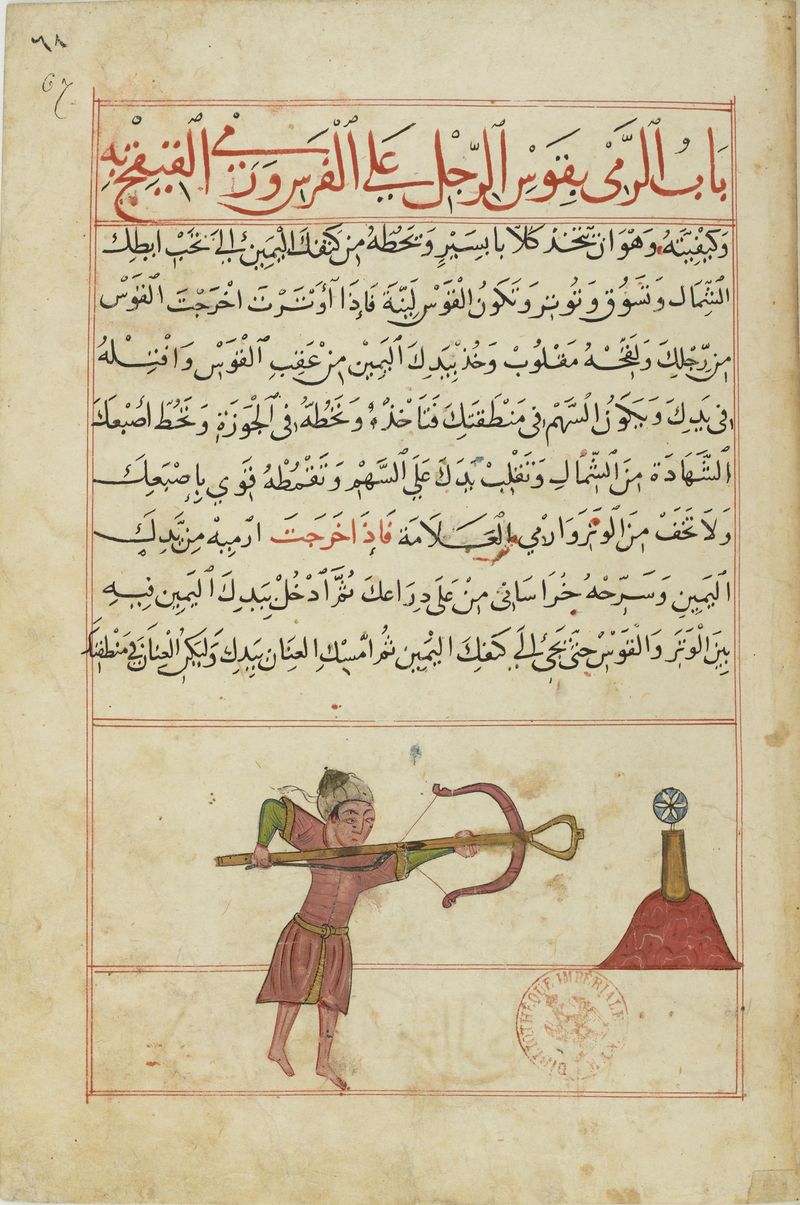 ٦٨
67
باب الرمي بقوس الرجل على الفرس ورمي القيقج به
وكيفيته وهو ان تتخذ كلابا بسير وتحطه من كتفك اليمين الى تحت ابطك
الشمال وتسوق وتوتر وتكون القوس لينة فاذا اوترت اخرجت القوس
من رجلك ولفخسه مقلوب وخذ بيدك اليمين من عقب القوس وافتله
في يدك ويكون السهم في منطقتك فتاخذه وتحطه في الجوزة وتحط اصبعك
الشهادة من الشمال وتقلب يدك على السهم وتقمطه قوي باصبعك
ولا تخف من الوتر وارمي العلامة فاذا خرجت ارميه من يدك
اليمين وسرحه خراساني من على دراعك ثم ادخل بيدك اليمين فيه
بين الوتر والقوس حتى يجئ الى كتفك اليمين ثم امسك العنان بيدك وليكن العنان في منطقتك
BIBLIOTHÈQUE IMPÉRIALE